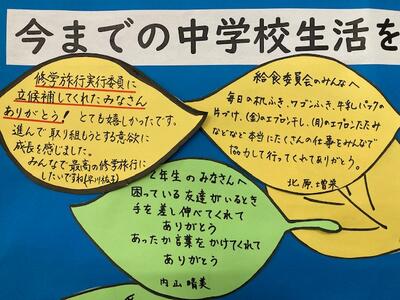 今までの中学校生活を
修学旅行実行委員に
立候補してくれたみなさん
ありがとう! とても嬉しかったです。
進んで取り組もうとする意欲に
成長を感じました。
みんなで最高の修学旅行に
したいですね(早川佑子)
給食委員会のみんなへ
毎日の机ふき、ワゴンふき、牛乳パックの
片づけ、(金)のエプロン干し、(月)のエプロンたたみ
などなど本当にたくさんの仕事をみんなで
協力して行ってくれてありがとう。
北原 増美
2年生のみなさんへ
困っている友達がいるとき
手を差し伸べてくれて
ありがとう
あったか言葉をかけてくれて
ありがとう
内山 晴美